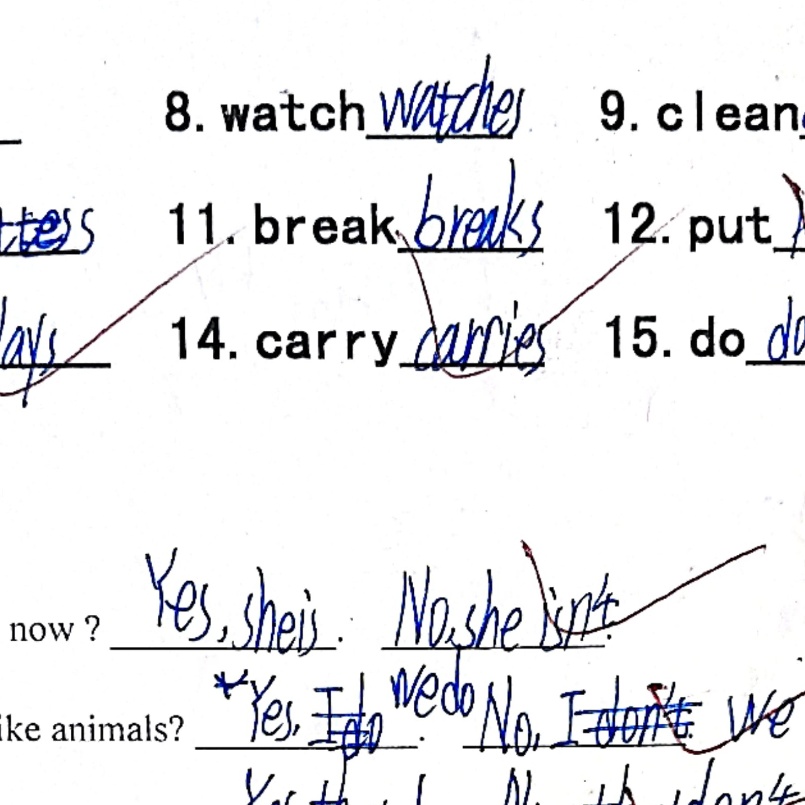 8. watch watches 9. clean
11. break breaks 12. put
14. carry carries 15. do
now ? Yes, she is. No, she isn't.
animals? Yes, I do we do. No, I don't. we